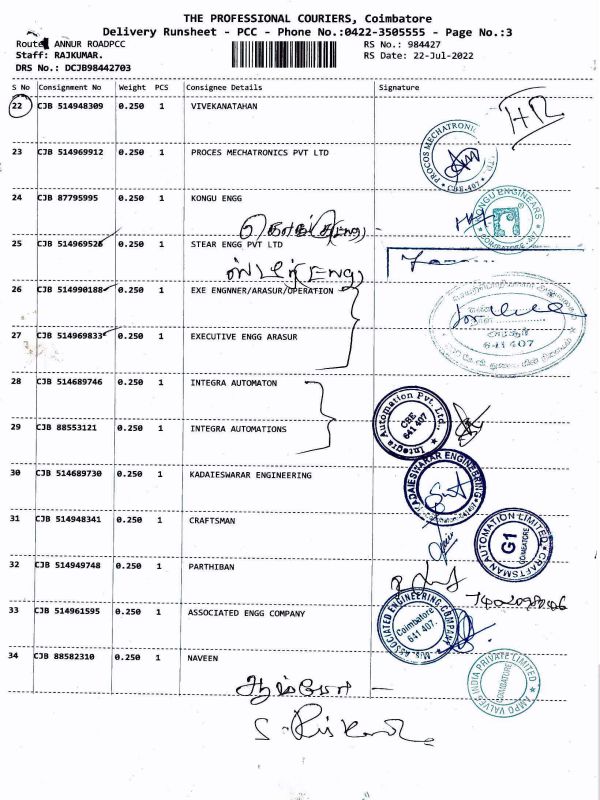 THE PROFESSIONAL COURIERS, Coimbatore
Delivery Runsheet - PCC - Phone No.:0422-3505555 - Page No.:3
Route ANNUR ROADPCC RS No.: 984427
Staff: RAJKUMAR. RS Date: 22-Jul-2022
DRS No.: DCJB98442703
S No Consignment No Weight PCS Consignee Details Signature
22 CJB 514948309 0.250 1 VIVEKANATAHAN
23 CJB 514969912 0.250 1 PROCES MECHATRONICS PVT LTD
PROCOS MECHATRONIC LTD. CBE-407
24 CJB 87795995 0.250 1 KONGU ENGG
KONGU ENGINEARS
(Eng)
25 CJB 514969526 0.250 1 STEAR ENGG PVT LTD
(Eng)
26 CJB 514990188 0.250 1 EXE ENGNNER/ARASUR/OPERATION
641 407
27 CJB 514969833 0.250 1 EXECUTIVE ENGG ARASUR
28 CJB 514689746 0.250 1 INTEGRA AUTOMATON
Integra Automation Pvt. Ltd., CBE 641 407
29 CJB 88553121 0.250 1 INTEGRA AUTOMATIONS
30 CJB 514689730 0.250 1 KADAIESWARAR ENGINEERING
KADAIESWARAR ENGINEERING
31 CJB 514948341 0.250 1 CRAFTSMAN
CRAFTSMAN AUTOMATION LIMITED G1 COIMBATORE
32 CJB 514949748 0.250 1 PARTHIBAN
33 CJB 514961595 0.250 1 ASSOCIATED ENGG COMPANY
M/s. ASSOCIATED ENGINEERING COMPANY Coimbatore 641 407.
34 CJB 88582310 0.250 1 NAVEEN
AMPO VALVES INDIA PRIVATE LIMITED COIMBATORE